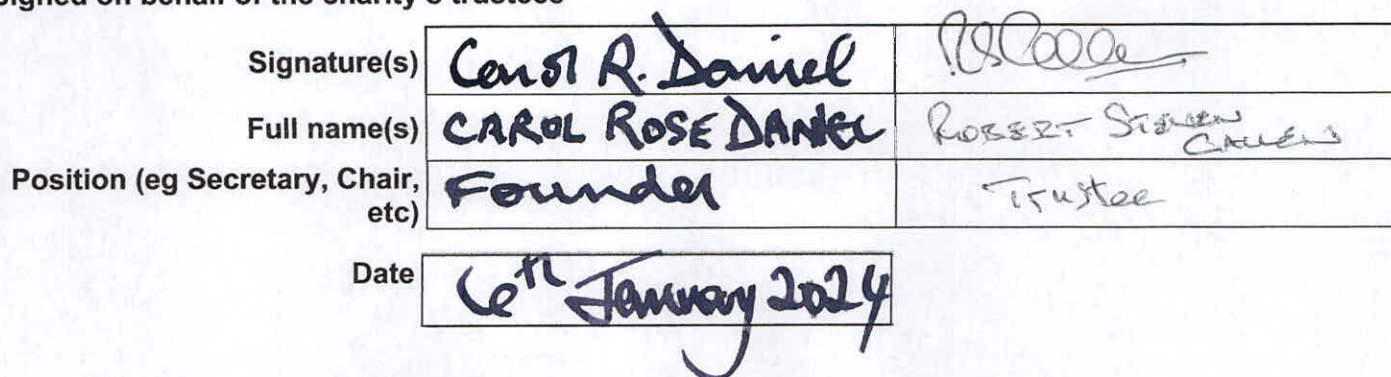 Signed on behalf of the charity's trustees
Signature(s) Carol R. Daniel
Full name(s) CAROL ROSE DANIEL ROBERT STEVEN
Position (eg Secretary, Chair, etc) Founder Trustee
Date 6th January 2024